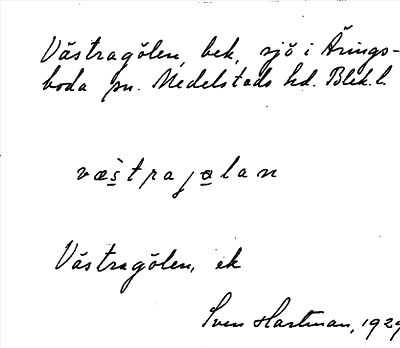 Västragölen, bek, sjö i Årings-
boda sn. Medelstads hd. Blek.l.
væ̀stragǫlan
Västragölen, ek
Sven Hartman, 1929